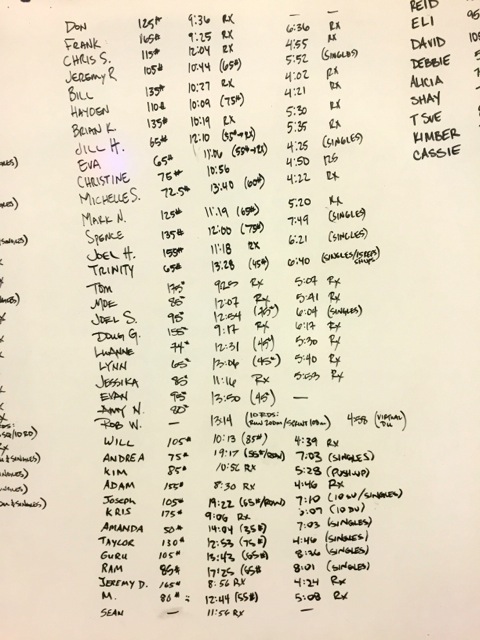 DON 125# 9:36 RX — —
FRANK 165# 9:25 RX 6:36 RX
CHRIS S. 115# 12:04 RX 4:55 RX
JEREMY R 105# 10:44 (65#) 5:52 (SINGLES)
BILL 135# 10:27 RX 4:02 RX
HAYDEN 110# 10:09 (75#) 4:21 RX
BRIAN K. 135# 10:19 RX 5:30 RX
JILL H. 65# 12:10 (55#→RX) 5:35 RX
EVA 65# 11:06 (55#→RX) 4:25 (SINGLES)
CHRISTINE 75# 10:56 4:50
MICHELLE S. 72.5# 13:40 (60#) 4:22 RX
MARK N. 125# 11:19 (65#) 5:20 RX
SPENCE 135# 12:00 (75#) 7:49 (SINGLES)
JOEL H. 155# 11:18 RX 6:21 (SINGLES)
TRINITY 65# 13:28 (45#) 6:40 (SINGLES/
TOM 175# RX 5:07 RX
MOE 85# 12:07 RX 5:41 RX
JOEL S. 95# 12:54 (75#) 6:04 (SINGLES)
DOUG G. 155# 9:17 RX 6:17 RX
LUANNE 74# 12:31 (45#) 5:30 RX
LYNN 65# 13:06 (45#) 5:40 RX
JESSIKA 85# 11:16 RX 5:53 RX
EVAN 95# 13:50 (45#) —
AMY N. 80#
ROB W. — 13:14 (10 RDS: RUN 200M/ 100M) 4:58 (VIRTUAL DU)
WILL 105# 10:13 (85#) 4:39 RX
ANDREA 75# 19:17 (55#/ROW) 7:03 (SINGLES)
KIM 85# 10:56 RX 5:28 (PUSH-UP)
ADAM 155# 8:30 RX 4:46 RX
JOSEPH 105# 19:22 (65#/ROW) 7:10 (10 DU/SINGLES)
KRIS 175# 9:06 RX (10 DU)
AMANDA 50# 14:04 (35#) 7:03 (SINGLES)
TAYLOR 130# 12:53 (75#) 4:46 (SINGLES)
GURU 105# 13:43 (65#) 8:36 (SINGLES)
RAM 85# 17:25 (65# 8:01 (SINGLES)
JEREMY D. 165# 8:56 RX 4:24 RX
M. 80# 12:44 (55#) 5:08 RX
SEAN — 11:56 RX —
REID
ELI 95
DAVID 105
DEBBIE
ALICIA
SHAY
TSUE
KIMBER
CASSIE